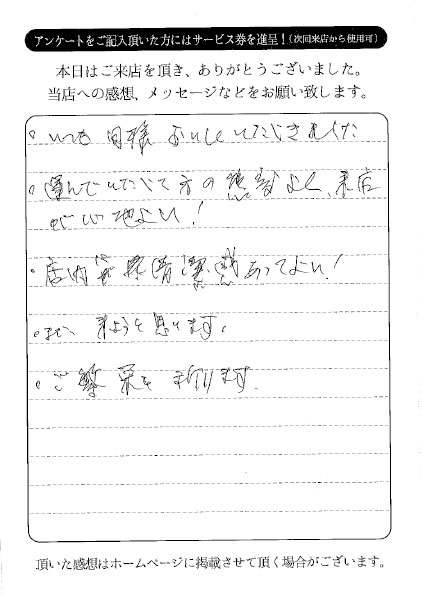 アンケートをご記入頂いた方にはサービス券を進呈！（次回来店から使用可）
本日はご来店を頂き、ありがとうございました。
当店への感想、メッセージなどをお願い致します。
。いつも 同様 おいしくいただきました
・運んでいただく方の態度よく、来店
が心地よい！
・店内 清潔感あってよい！
・また 来ようと思います。
。ご繁栄を祈ります.
頂いた感想はホームページに掲載させて頂く場合がございます。